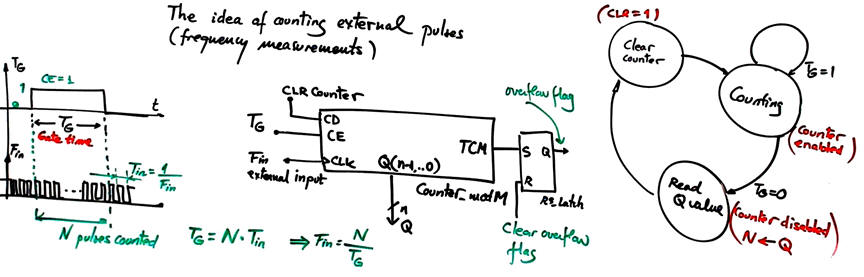 The idea of counting external pulses
(frequency measurements)
TG
1
0
CE = 1
t
TG
Gate time
Fin
Tin = 1/Fin
N pulses counted
TG = N · Tin ⇒ Fin = N/TG
CLR Counter
TG
Fin
external input
CD
CE
CLK
Q(n-1,..0)
TCM
Counter_modM
n
Q
overflow flag
S Q
R
RS_latch
Clear overflow
flag
(CLR=1)
Clear
counter
TG=1
Counting
(Counter
enabled)
TG=0
Read
Q value
(Counter disabled)
N ← Q